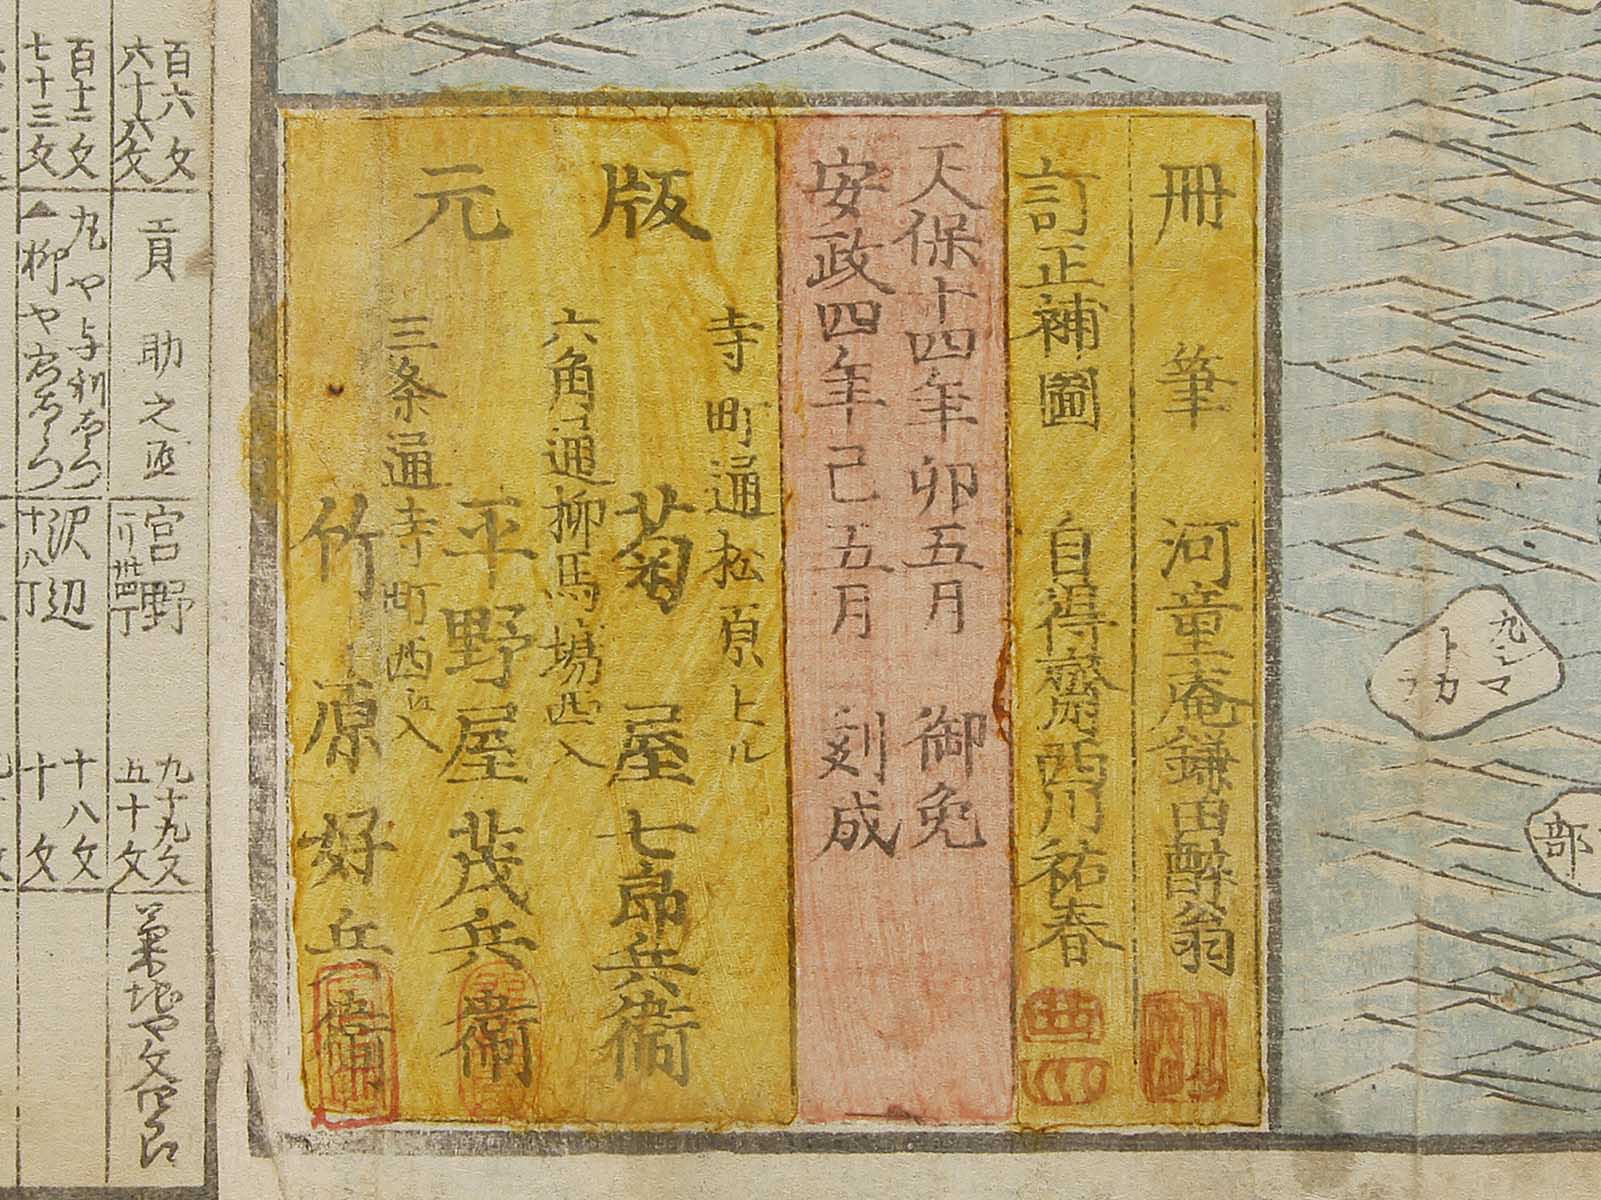 冊筆 河童庵鎌田酔翁
訂正補圖 自得齋西川祐春
天保十四年卯五月 御免
安政四年己五月 刻成
版元
寺町通松原上ル
菊屋七郎兵衛
六角通柳馬場西入
平野屋茂兵衛
三条通寺町西江入
竹原好兵衛
丸シマ
トカ
部
百六文
六十六文
貢助之丞
宮野
一リ卅四丁
九十九文
五十文
百十二文
七十三文
沢辺
十八丁
十八文
十文